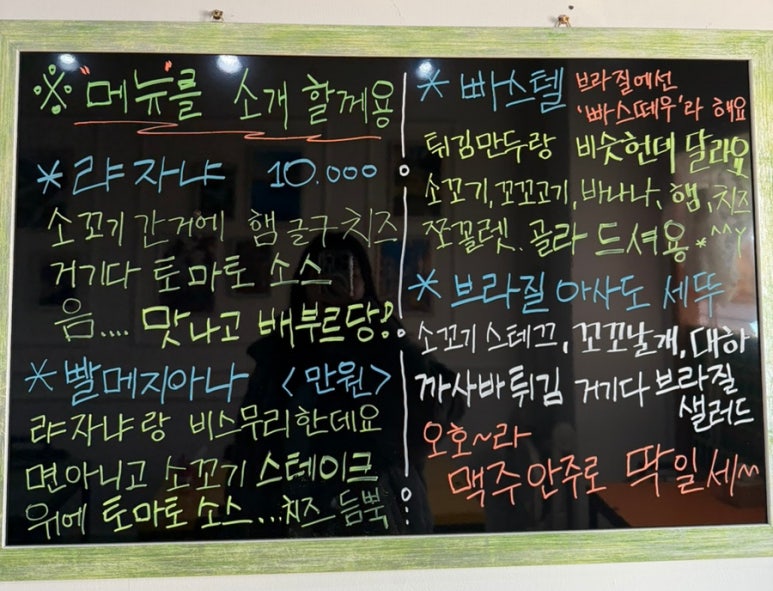 ※ "메뉴"를 소개 할께용
* 랴자냐 10.000
소꼬기 간거에 햄글구 치즈
거기다 토마토 소스
음.... 맛나고 배부르당!
* 빨메지아나 <만원>
랴자냐랑 비스무리한데요
면아니고 소꼬기 스테이크
위에 토마토 소스...치즈 듬뿍
* 빠스텔 브라질에선
'빠스떼우'라 해요
튀김만두랑 비슷헌데 달라요
소꼬기, 꼬꼬고기, 바나나, 햄, 치즈
쪼꼴렛. 골라 드셔용*^^Y
* 브라질 아사도 세뚜
소꼬기 스테끄, 꼬꼬날개, 대하
까사바 튀김 거기다 브라질
샐러드
오호~라
맥주안주로 딱일세~